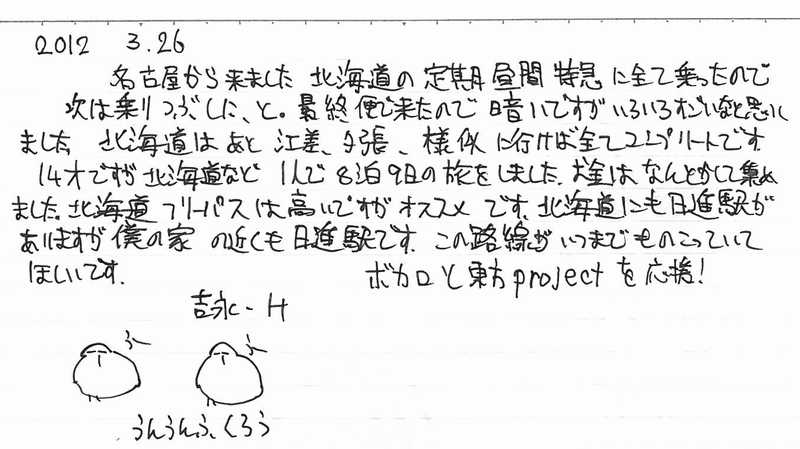 2012 3.26
名古屋から来ました 北海道の定期昼間特急に全て乗ったので
次は乗りつぶした、と。最終便で来たので暗いですがいろいろすごいなと思い
ました 北海道はあと江差、夕張、様似に行けば全てコンプリートです
14才ですが北海道など1人で8泊9日の旅をしました。お金はなんとかして集め
ました。北海道フリーパスは高いですがオススメです。北海道にも日進駅が
ありますが僕の家の近くも日進駅です。この路線がいつまでものこっていて
ほしいです。
ボカロと東方projectを応援!
吉永-H
ふー ふー
うんうんふくろう